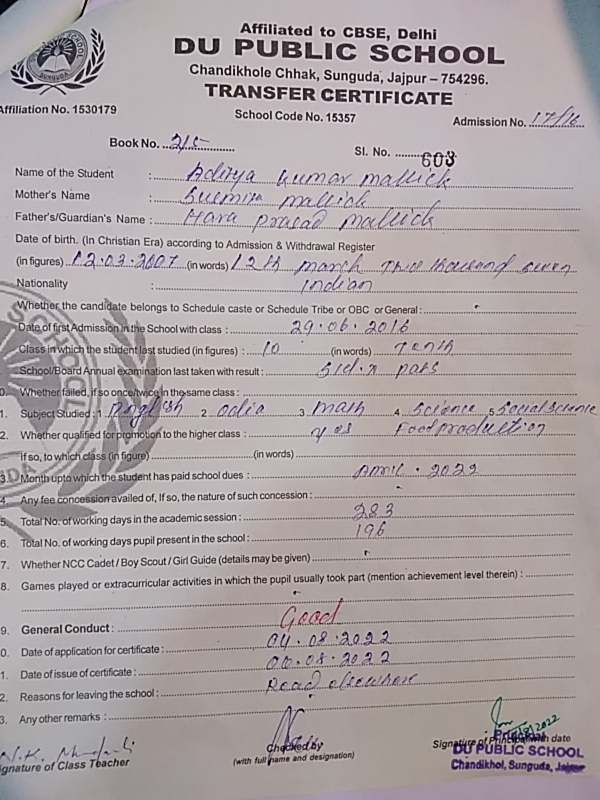 Affiliated to CBSE, Delhi
DU PUBLIC SCHOOL
Chandikhole Chhak, Sunguda, Jajpur – 754296.
TRANSFER CERTIFICATE
Affiliation No. 1530179
School Code No. 15357
Admission No. 17/16
Book No. 215
Sl. No. 603
Name of the Student : Aditya Kumar Mallick
Mother's Name : Susmita Mallick
Father's/Guardian's Name : Hara Prasad Mallick
Date of birth. (In Christian Era) according to Admission & Withdrawal Register
(in figures) 12.03.2007 (in words) 12th March Two thousand seven
Nationality : Indian
Whether the candidate belongs to Schedule caste or Schedule Tribe or OBC or General :
Date of first Admission in the School with class : 29.06.2016
Class in which the student last studied (in figures) : 10 (in words) Tenth
School/Board Annual examination last taken with result : Std. X pass
0. Whether failed, if so once/twice in the same class :
1. Subject Studied : 1. English 2. Odia 3. Math 4. Science 5. Social science
2. Whether qualified for promotion to the higher class : yes Food production
If so, to which class (in figure) (in words)
3. Month upto which the student has paid school dues : April . 2022
4. Any fee concession availed of, If so, the nature of such concession :
5. Total No. of working days in the academic session : 283
6. Total No. of working days pupil present in the school : 196
7. Whether NCC Cadet / Boy Scout / Girl Guide (details may be given)
8. Games played or extracurricular activities in which the pupil usually took part (mention achievement level therein) :
9. General Conduct : Good
0. Date of application for certificate : 04.08.2022
1. Date of issue of certificate : 06.08.2022
2. Reasons for leaving the school : Read elsewhere
3. Any other remarks :
Signature of Class Teacher
Checked by
(with full name and designation)
Signature of Principal with date
Principal
DU PUBLIC SCHOOL
Chandikhol, Sunguda, Jajpur